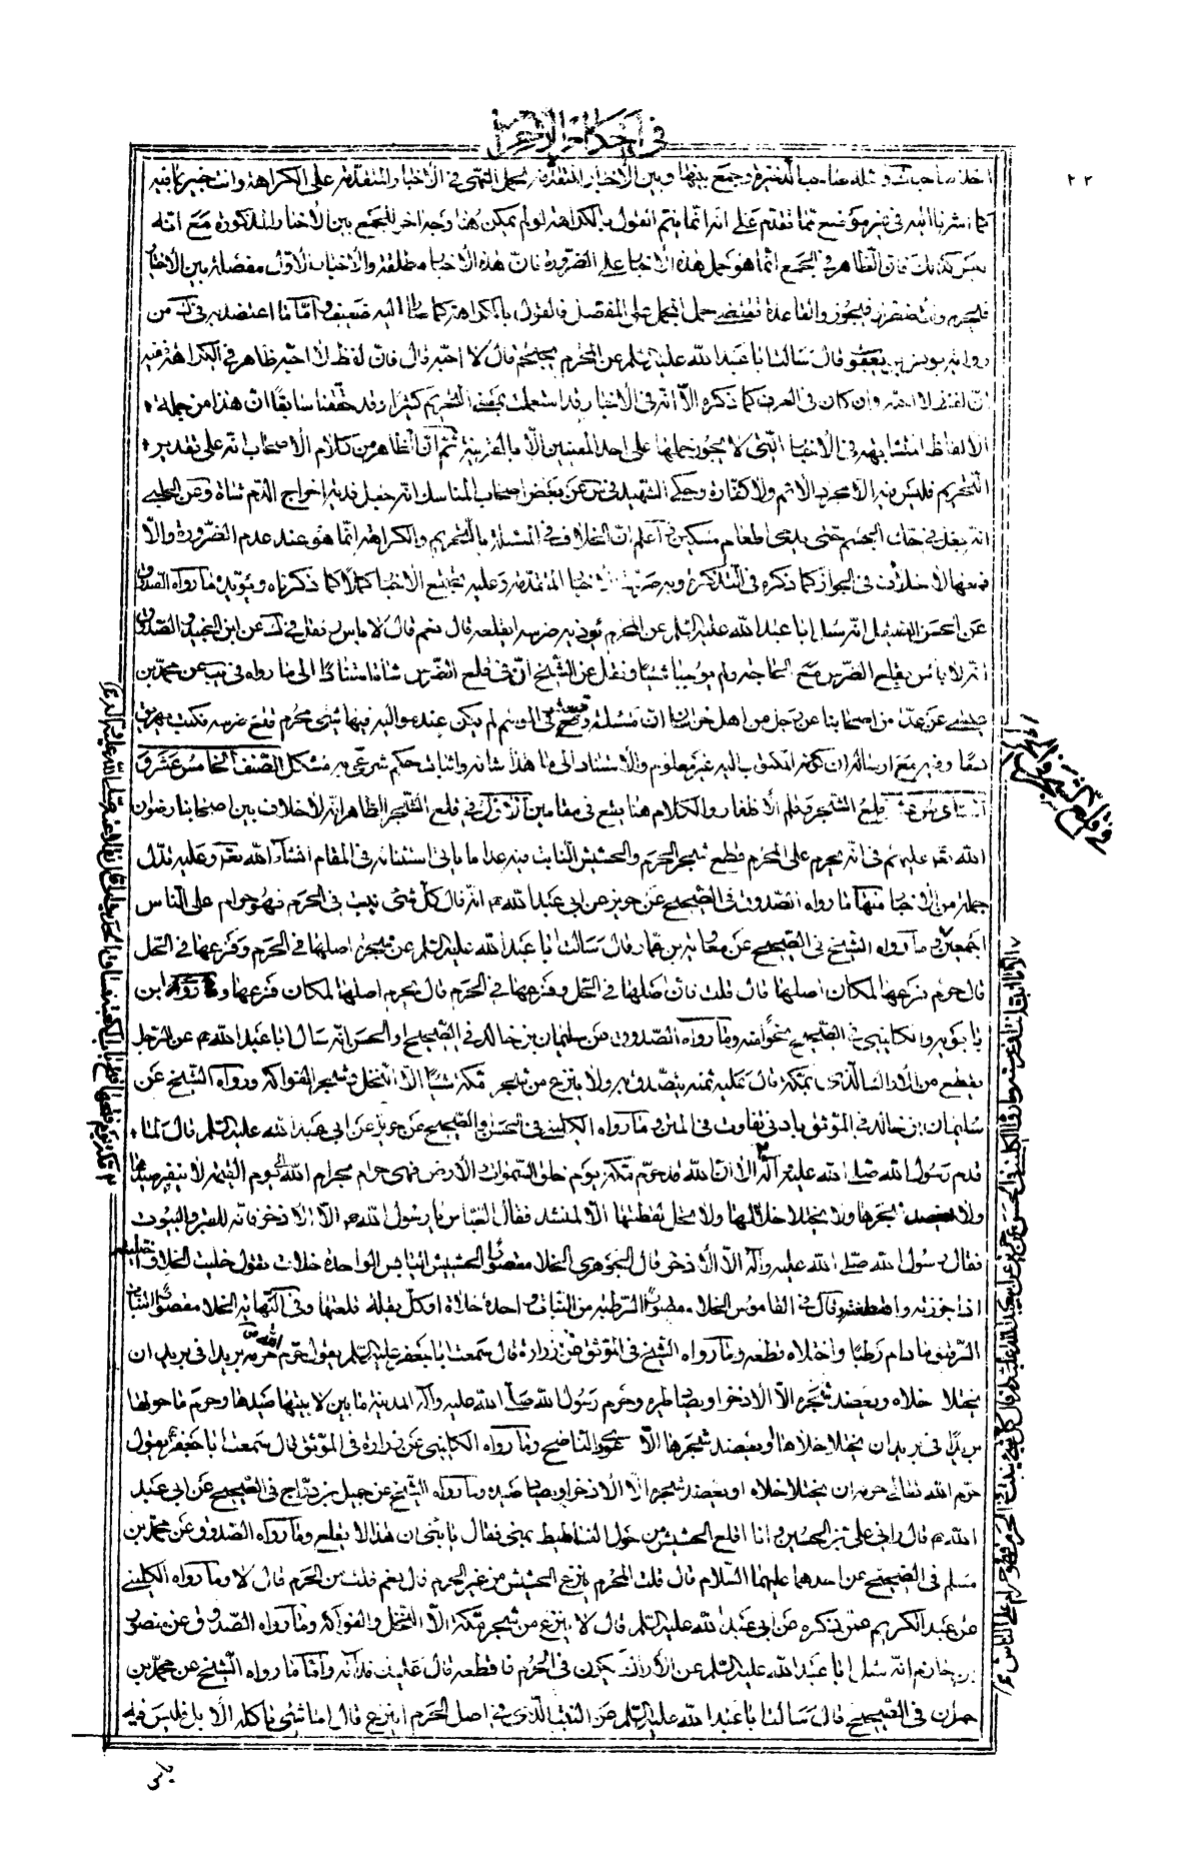 في احكام الاحرام
٢٣
اختاره صاحب ك ومثله صاحب الذخيرة وجمع بينها وبين الأخبار المتقدمة بحمل النهى في الأخبار المتقدمة على الكراهة وانت خبير بما فيه
كما اشرنا اليه في غير موضع مما تقدم على انه انما يتم القول بالكراهة لو لم يمكن هنا وجه اخر للجمع بين الأخبار المذكورة مع انه
ليس كذلك فان الظاهر في الجمع انما هو حمل هذه الأخبار على الضرورة فان هذه الأخبار مطلقة والأخبار الأول مفصلة بين الأختيار
فليحرم وبين الضرورة فيجوز والقاعدة تقتضى حمل المجمل على المفصل فالقول بالكراهة كما مال اليه ضعيف واما ما اعتضد به في ك من
رواية يونس بن يعقوب قال سالت ابا عبد الله عليه السلم عن المحرم يحتجم قال لا احبه قال فان لفظ لا احبه ظاهر في الكراهة ففيه
ان لفظ لا احبه وان كان في العرف كما ذكره الا انه في الأخبار قد استعملت بمعنى التحريم كثيرا وقد حققنا سابقا ان هذا من جملة
الألفاظ المتشابهة في الأخبار التي لا يجوز حملها على احد المعنيين الا بالقرينة ثم ان الظاهر من كلام الاصحاب انه على تقدير
التحريم فليس فيه الا مجرد الأثم ولا كفارة وحكى الشهيد في س عن بعض اصحاب المناسك انه جعل فدية اخراج الدم شاة وعن الحلبي
انه جعل في حك الجسم حتى يدمى اطعام مسكين ثم اعلم ان الخلاف في المسئلة بالتحريم والكراهة انما هو عند عدم الضرورة والا
فمعها لا خلاف في الجواز كما ذكره في التذكرة وبه صرحت الأخبار المتقدمة وعليه تجتمع الأخبار كملا كما ذكرناه ويؤيده ما رواه الصدوق
عن الحسن الصيقل انه سئل ابا عبد الله عليه السلم عن المحرم يؤذيه ضرسه ايقلعه قال نعم قال لا باس ونقل في ك عن ابن الجنيد والصدوق
انه لا باس بقلع الضرس مع الحاجة ولم يوجبا شيئا ونقل عن الشيخ ان في قلع الضرس شاة استنادا الى ما رواه في يب عن محمد بن
عيسى عن عدة من اصحابنا عن رجل من اهل خراسان ان مسئلة وقعت في الموسم لم يكن عند مواليه فيها شئ محرم قلع ضرسه فكتب يهريق
دما وفيه مع ارساله ان كون المكتوب اليه غير معلوم والأستناد الى ما هذا شانه واثبات حكم شرعي به مشكل الصنف الخامس عشر و
السادس عشر قلع الشجر وقلم الأظفار والكلام هنا يقع في مقامين الاول في قلع الشجر الظاهر انه لا خلاف بين اصحابنا رضوان
الله تعم عليهم في انه يحرم على المحرم قطع شجر الحرم والحشيش النابت فيه عدا ما ياتى استثنائه في المقام انشاء الله تعم وعليه تدل
جملة من الأخبار منها ما رواه الصدوق في الصحيح عن حريز عن ابي عبد الله ع انه قال كل شئ ينبت في الحرم فهو حرام على الناس
اجمعين وما رواه الشيخ في الصحيح عن معوية بن عمار قال سالت ابا عبد الله عليه السلم عن شجرة اصلها في الحرم وفرعها في الحل
قال حرم فرعها لمكان اصلها قال قلت فان اصلها في الحل وفرعها في الحرم قال يحرم اصلها لمكان فرعها وما رواه ابن
بابويه والكليني في الصحيح نحو منه وما رواه الصدوق عن سليمان بن خالد في الصحيح او الحسن انه سال ابا عبد الله ع عن الرجل
يقطع من الأراك الذي بمكة قال عليه ثمنه يتصدق به ولا ينزع من شجر مكة شيئا الا النخل وشجر الفواكه ورواه الشيخ عن
سليمان بن خالد في الموثق بادنى تفاوت في المتن وما رواه الكليني في الحسن والصحيح عن حريز عن ابي عبد الله عليه السلم قال لما
قدم رسول الله صلى الله عليه وآله الا ان الله قد حرم مكة يوم خلق السموات والأرض فهى حرام بحرام الله الى يوم القيمة لا ينفر صيدها
ولا يعضد شجرها ولا يختلا خلالها ولا يحل لقطتها الا لمنشد فقال العباس يا رسول الله ص الا الاذخر فانه للقبر والبيوت
فقال رسول الله صلى الله عليه وآله الا الأذخر قال الجوهري الخلا مقصورا الحشيش اليابس الواحدة خلات تقول خليت الخلا واختليته
اذا جززته وقطعته وقال في القاموس الخلاء مقصورا الرطبة من النبات واحدة خلاة او كل بقلة قلعتها وفي النهاية الخلا مقصورا النبات
الرطب ما دام رطبا واختلاه قطعه وما رواه الشيخ في الموثق عن زرارة قال سمعت ابا جعفر عليه السلم يقول حرم الله حرمه بريدا في بريد ان
يختلا خلاه ويعضد شجره الا الأذخر او يصاد طيره وحرم رسول الله صلى الله عليه وآله المدينة ما بين لابتيها صيدها وحرم ما حولها
بريدا في بريد ان يختلا خلاها او يعضد شجرها الا عودى الناضح وما رواه الكليني عن زرارة في الموثق قال سمعت ابا جعفر ع يقول
حرم الله تعالى حرمه ان يختلا خلاه او يعضد شجره الا الأذخر او يصاد صيده وما رواه الشيخ عن جميل بن دراج في الصحيح عن ابي عبد
الله ع قال راني على بن الحسين وانا اقلع الحشيش من حول الفساطيط بمنى فقال يا بنى ان هذا لا يقلع وما رواه الصدوق عن محمد بن
مسلم في الصحيح عن احدهما عليهما السلام قال قلت المحرم ينزع الحشيش من غير الحرم قال نعم قلت من الحرم قال لا وما رواه الكليني
عن عبد الكريم عمن ذكره عن ابي عبد الله عليه السلم قال لا ينزع من شجر مكة الا النخل والفواكه وما رواه الصدوق عن منصور
بن حازم انه سئل ابا عبد الله عليه السلم عن الأراك يكون في الحرم فاقطعه قال عليك فداؤه واما ما رواه الشيخ عن محمد بن
حمران في الصحيح قال سالت ابا عبد الله عليه السلم عن النبت الذي في اصل الحرم اينزع قال اما شئ تاكله الأبل فليس فيه
في قلع الشجر وقلم الأظفار